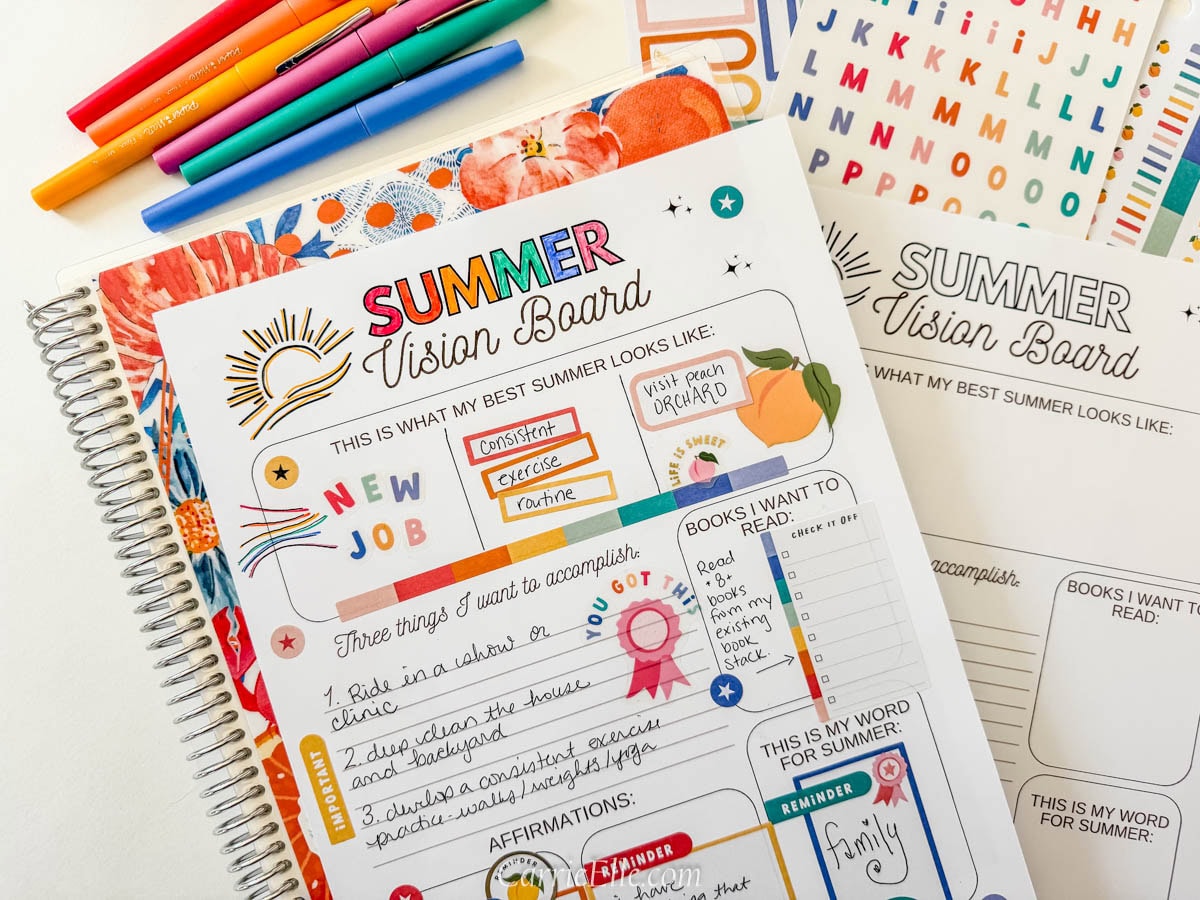 Paper Mate
H
i i i i i H H
J K K K K i J J J
L M M M K L L L
N N M M M M N L
P N N N O O O N
P P P O O O
SUMMER
Vision Board
THIS IS WHAT MY BEST SUMMER LOOKS LIKE:
NEW
JOB
consistent
exercise
routine
visit peach
ORCHARD
LIFE IS SWEET
Three things I want to accomplish:
YOU GOT THIS
1. Ride in a show or
clinic
2. deep clean the house
and backyard
3. develop a consistent exercise
practice-walks/weights/yoga
IMPORTANT
BOOKS I WANT TO
READ:
Read
+8+
books
from my
existing
book
stack.
CHECK IT OFF
THIS IS MY WORD
FOR SUMMER:
REMINDER
family
AFFIRMATIONS:
REMINDER
REMINDER
i have
that
SUMMER
Vision Board
WHAT MY BEST SUMMER LOOKS LIKE:
accomplish:
BOOKS I WANT TO
READ:
THIS IS MY WORD
FOR SUMMER:
CarrieElle.com